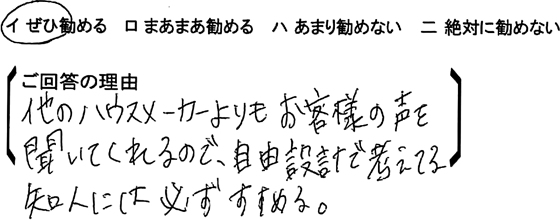 イ ぜひ勧める ロ まあまあ勧める ハ あまり勧めない ニ 絶対に勧めない
ご回答の理由
他のハウスメーカーよりもお客様の声を
聞いてくれるので、自由設計で考えてる
知人には必ずすすめる。